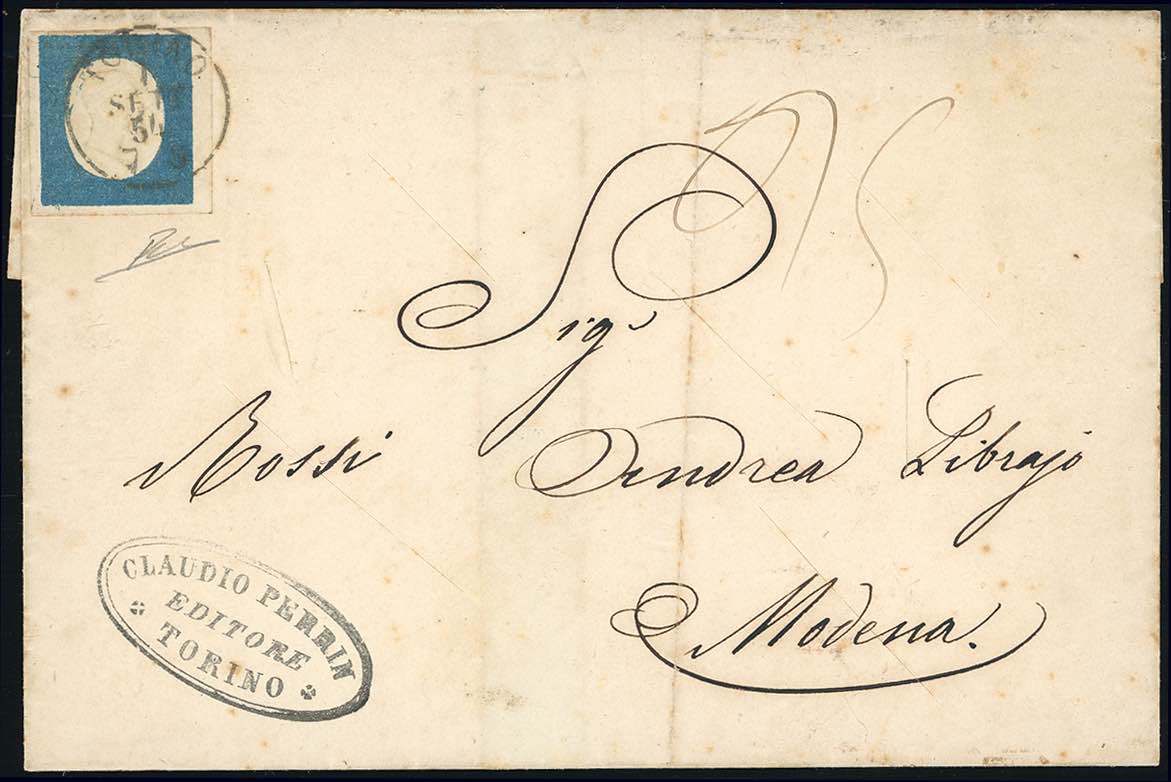 TORINO
SETT
54
Sigr
Rossi Andrea Librajo
Modena.
CLAUDIO PERRIN
EDITORE
TORINO